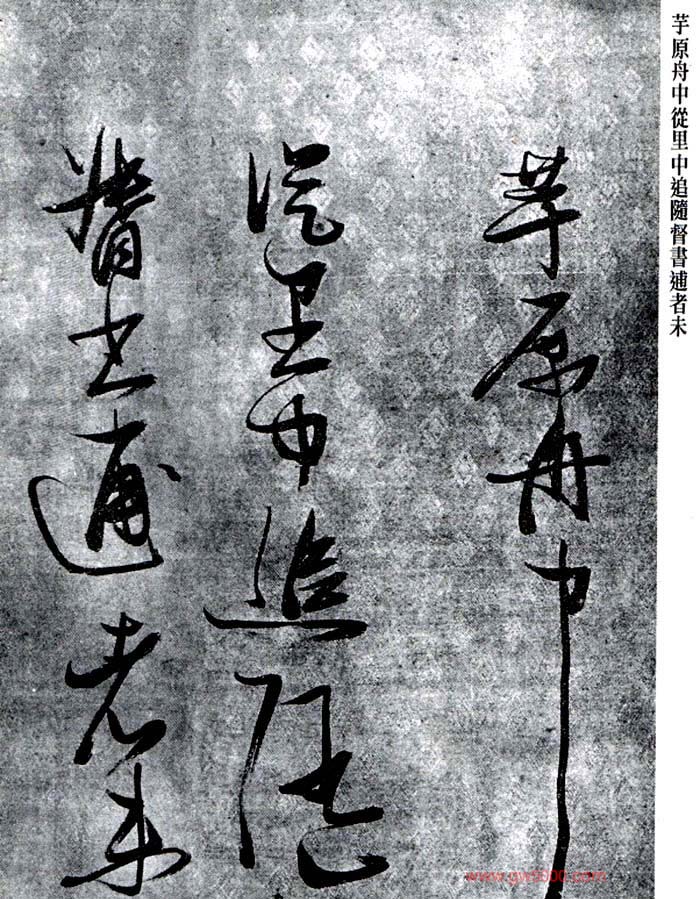 芋原舟中從里中追隨督書逋者未
芋原舟中
從里中追隨
督書逋者未